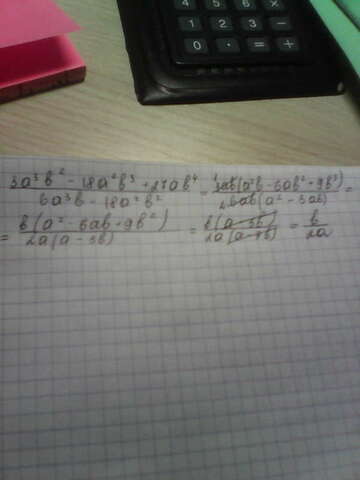 4 5 6 ×
1 2 3 -
0 · = +
3a³b² - 18a²b³ + 27ab⁴ / 6a³b - 18a²b² = ¹3ab(a²b - 6ab² + 9b³) / ₂6ab(a² - 3ab) =
= b(a² - 6ab + 9b²) / 2a(a - 3b) = b(a - 3b) / 2a(a - 3b) = b / 2a